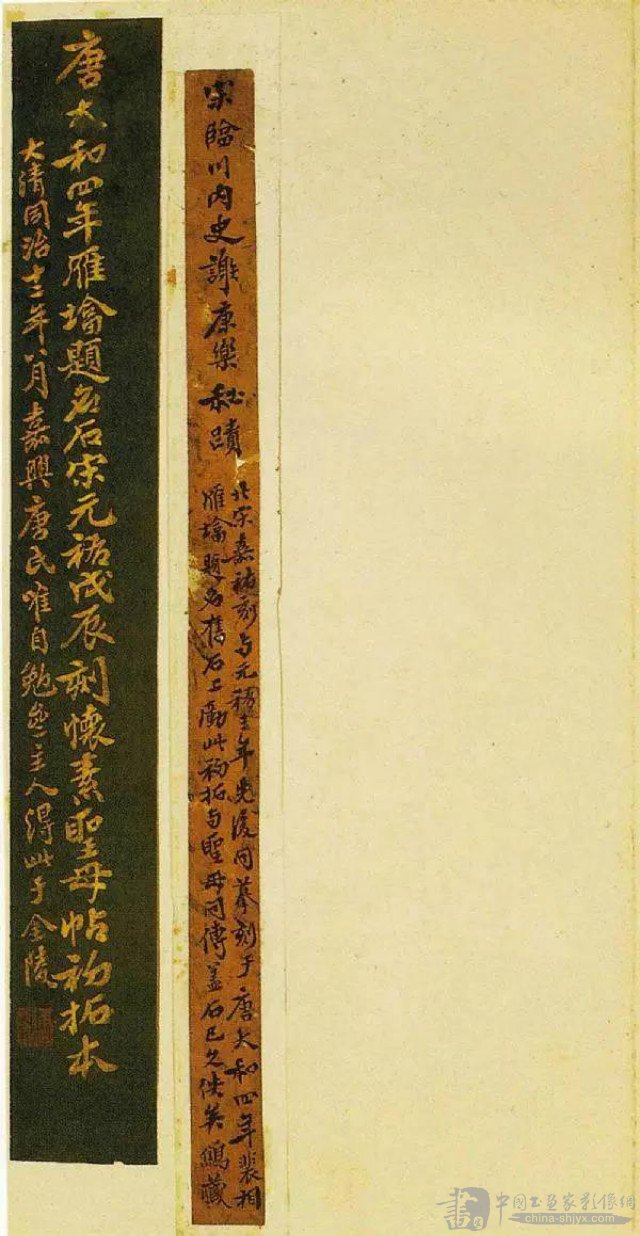 宋臨川内史謝康樂秘蹟
北宋嘉祐刻与元祐三年先後同摹刻于唐大和四年裴相
雁墖題名舊石上此初拓与聖母同傳蓋石已久佚矣鷦藏
唐大和四年雁墖題名石宋元祐戊辰刻懷素聖母帖初拓本
大清同治十二年八月嘉興唐氏唯自勉齋主人得此于金陵
中国书画家影像網
china-shjyx.com